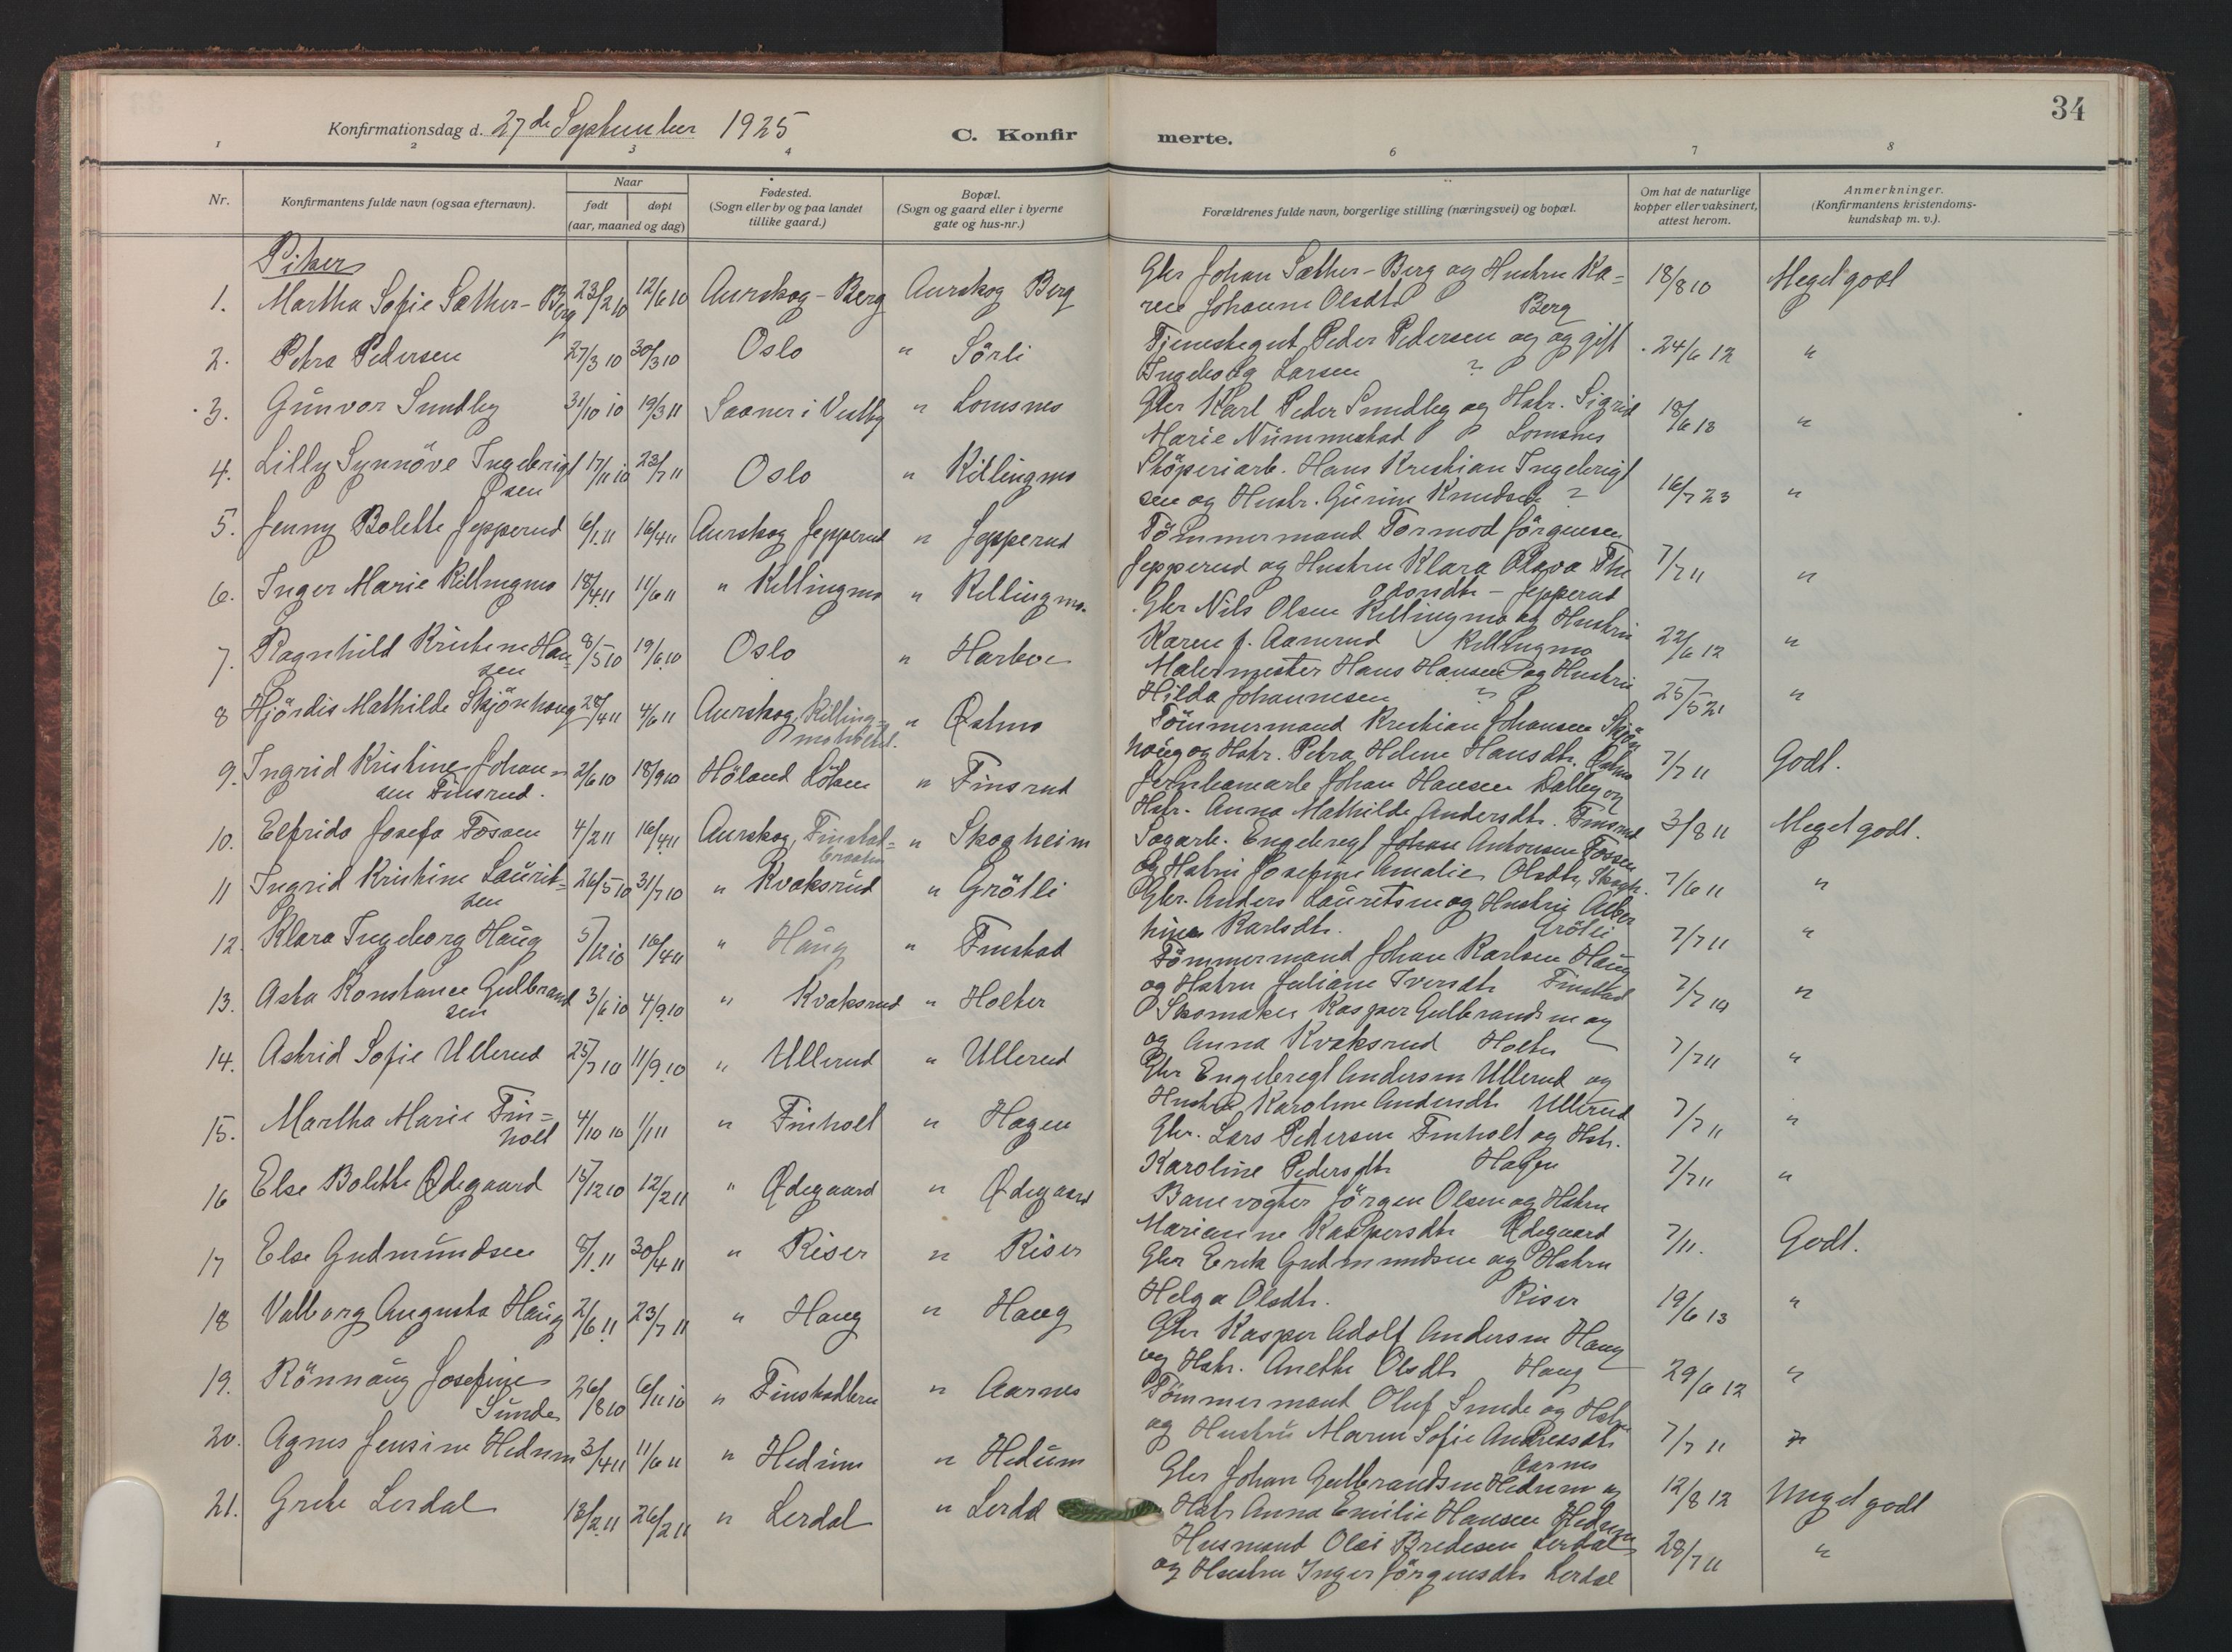 34
Konfirmationsdag d. 27de September 1925
C. Konfir merte.
1 2 3 4 6 7 8
Nr.
Konfirmantens fulde navn (ogsaa efternavn).
Naar
født døpt
(aar, maaned og dag)
Fødested.
(Sogn eller by og paa landet
tillike gaard.)
Bopæl.
(Sogn og gaard eller i byerne
gate og hus-nr.)
Forældrenes fulde navn, borgerlige stilling (næringsvei) og bopæl.
Om hat de naturlige
kopper eller vaksinert,
attest herom.
Anmerkninger.
(Konfirmantens kristendoms-
kundskap m. v.).
Piker
1. Martha Sofie Sæther-Berg 23/2 10 12/6 10 Aurskog-Berg Aurskog Berg
Gbr Johan Sæther-Berg og Hustru Ka-
ren Johanne Olsdtr Berg
18/8 10 Meget godt
2. Petra Pedersen 27/3 10 30/3 10 Oslo " Sörli
Tjenestegut Peder Pedersen og ug gift
Ingeborg Larsen ?
24/6 12 "
3. Gunvor Sundby 31/10 10 19/3 11 Saaner i Vestby " Lomsnes
Gbr Karl Peder Sundby og Hstr. Sigrid
Marie Nummestad Lomsnes
18/6 13 "
4. Lilly Synnöve Ingebrigt
sen 17/11 10 23/7 11 Oslo " Killingmo
Stöperiarb. Hans Kristian Ingebrigt
sen og Hustr. Gurine Knudsen ?
16/7 23 "
5. Jenny Bolette Jepperud 6/1 11 16/4 11 Aurskog Jepperud " Jepperud
Tömmermand Tormod Jörgensen
Jepperud og Hustru Klara Olava The
odorsdtr - Jepperud
7/7 11 "
6. Inger Marie Killingmo 18/4 11 11/6 11 " Killingmo " Killingmo.
Gbr Nils Olsen Killingmo og Hustru
Karen f. Aanerud Killingmo
22/6 12 "
7. Ragnhild Kristine Han-
sen 8/5 10 19/6 10 Oslo " Harboe
Malermester Hans Hansen og Hustru
Hilda Johannesen ?
25/5 21 "
8 Hjördis Mathilde Skjönhaug 28/4 11 4/6 11 Aurskog, Killing-
moholtet. " Østmo
Tömmermand Kristian Johansen Skjön
haug og Hstr. Petra Helene Hansdtr. Østmo
7/7 11 Godt.
9. Ingrid Kristine Johan-
sen Finsrud. 2/6 10 18/9 10 Höland Löken " Finsrud
Jernbanearb Johan Hansen Dalby og
Hstr. Anna Mathilde Andersdtr. Finsrud
3/8 11 Meget godt.
10. Elfrida Josefa Fossen 4/2 11 16/4 11 Aurskog, Finstad-
braaten " Skogheim
Sagarb. Engebregt Johan Antonsen Fossen
og Hstru Josefine Amalie Olsdtr, Skogh.
7/6 11 "
11 Ingrid Kristine Laurit-
sen 26/5 10 31/7 10 " Kvaksrud " Grötli
Gbr. Anders Lauritsen og Hustru Alber
tine Karlsdtr. Grötli
7/7 11 "
12. Klara Ingeborg Haug 5/12 10 16/4 11 " Haug " Finstad
Tömmermand Johan Karlsen Haug
og Hstru Juliane Iversdtr Finstad
7/7 10 "
13. Asta Konstance Gulbrand
sen 3/6 10 4/9 10 " Kvaksrud " Holter
Skomaker Kasper Gulbrandsen og
og Anna Kvaksrud Holter
7/7 11 "
14. Astrid Sofie Ullerud 25/7 10 11/9 10 " Ullerud " Ullerud
Gbr Engebregt Andersen Ullerud og
Hustru Karoline Andersdtr Ullerud
7/7 11 "
15. Martha Marie Fin-
holt 4/10 10 1/1 11 " Finholt " Hagen
Gbr. Lars Pedersen Finholt og Hstr.
Karoline Pedersdtr Hagen
7/7 11 "
16 Else Bolette Ødegaard 15/12 10 12/2 11 " Ødegaard " Ødegaard
Banevogter Jörgen Olsen og Hstru
Marianne Kaspersdtr Ødegaard
7/11. Godt.
17 Else Gudmundsen 8/1 11 30/4 11 " Riser " Riser
Gbr Erik Gudmundsen og Hstru
Helga Olsdtr. Riser
19/6 13 "
18 Valborg Augusta Haug 2/6 11 23/7 11 " Haug " Haug
Gbr Kasper Adolf Andersen Haug
og Hstr. Anette Olsdtr Haug
29/6 12 "
19. Rönnaug Josefine
Sunde 26/8 10 6/11 10 " Finstadbru " Aarnes
Tömmermand Oluf Sunde og Hstru
og Hustru Maren Sofie Andreasdtr
Aarnes
7/7 11 "
20. Agnes Jensine Hedum 3/4 11 11/6 11 " Hedum " Hedum
Gbr Johan Gulbrandsen Hedum og
Hstr Anna Emilie Hansen Hedum
12/8 12 Meget godt
21. Grete Lerdal 13/2 11 26/2 11 " Lerdal " Lerdal
Husmand Olai Bredesen Lerdal
og Hustru Inger Jörgensdtr Lerdal
28/7 11 "